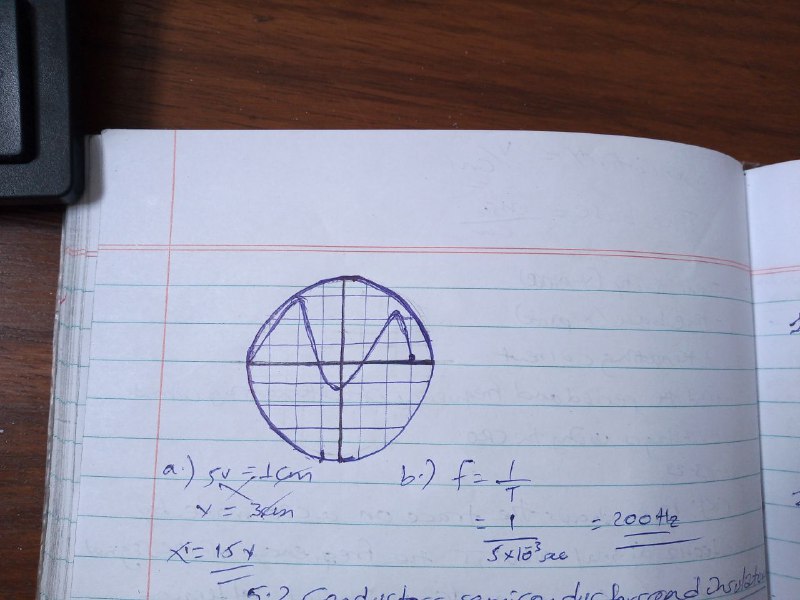 a.) 5v = 1cm
x = 3cm
x = 15v
b.) f = 1/T
= 1/5x10⁻³sec = 200Hz
5.2 Conductors, semiconductors and Insulators